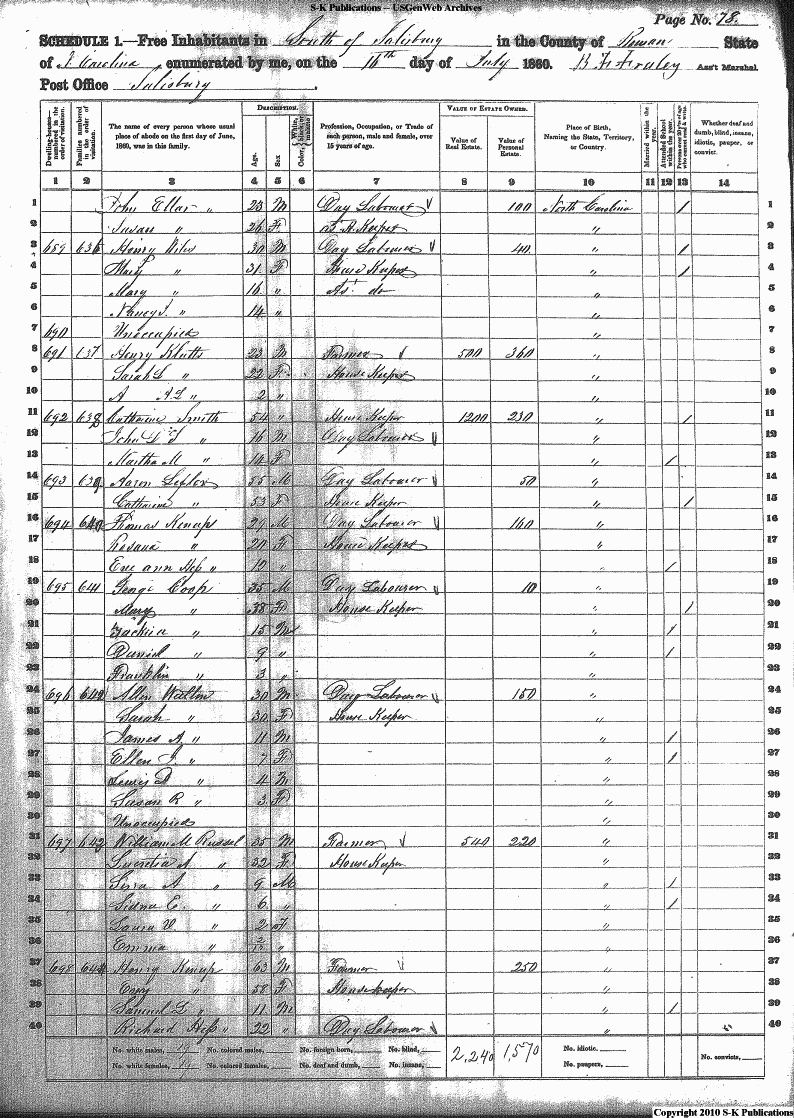 S-K Publications – USGenWeb Archives
Page No. 78.
Schedule 1.—Free Inhabitants in South of Salisbury in the County of Rowan State
of N Carolina enumerated by me, on the 16th day of July 1860. Ass't Marshal.
Post Office Salisbury.
Dwelling-houses numbered in the order of visitation. Families numbered in the order of visitation. The name of every person whose usual place of abode on the first day of June, 1860, was in this family. Description. Age. Sex. Color, Profession, Occupation, or Trade of each person, male and female, over 15 years of age. Value of Estate Owned. Value of Real Estate. Value of Personal Estate. Place of Birth, Naming the State, Territory, or Country. Married within the year. Attended School within the year. Whether deaf and dumb, blind, insane, idiotic, pauper, or convict.
1 2 3 4 5 6 7 8 9 10 11 12 13 14
1 John Ellar " 23 M Day Labourer 100 North Carolina / 1
2 Susan " 26 F Keeper " 2
3 689 636 Henry Wiles 30 M Day Labourer 40 " / 3
4 Mary " 31 F House Keeper " / 4
5 Mary " 16 " As't do " 5
6 Nancy J. " 14 " " 6
7 690 Unoccupied " 7
8 691 137 Henry Klutts 23 M Farmer 500 360 " 8
9 Sarah L " 22 F House Keeper " 9
10 A A L " 2 " " 10
11 692 638 Catharine Smith 54 " House Keeper 1200 230 " / 11
12 John " 16 M Day Labourer " 12
13 Martha M " 14 F " / 13
14 693 639 Aaron 55 M Day Labourer 50 " 14
15 Catharine " 53 F House Keeper " / 15
16 694 640 Thomas Kenaps 29 M Day Labourer 160 " 16
17 Rosana " 20 F House Keeper " 17
18 Eve ann Hess " 10 " " / 18
19 695 641 George Coop 35 M Day Labourer 10 " 19
20 Mary " 38 F House Keeper " / 20
21 " 15 M " / 21
22 Daniel " 9 " " / 22
23 Franklin " 3 " " 23
24 696 642 Allen Walton 30 M Day Labourer 150 " 24
25 Sarah " 30 F House Keeper " 25
26 James A " 11 M " / 26
27 Ellen J. " 7 F " / 27
28 Lewis D " 4 M " 28
29 Susan R " 3 F " 29
30 Unoccupied " 30
31 697 643 William M Russel 35 M Farmer 540 220 " 31
32 Lucretia A " 32 F House Keeper " 32
33 A " 9 M " / 33
34 Sidna E. " 6 " " / 34
35 Laura V. " 2 F " 35
36 Emma " " " 36
37 698 644 Henry Kenup 63 M Farmer 250 " 37
38 " 58 F Housekeeper " 38
39 Samuel L " 11 M " / 39
40 Richard Hess " 22 " Day Labourer " 40
No. white males, 19 No. colored males, No. foreign born, No. blind, 2,240 1,570 No. idiotic, No. convicts,
No. white females, 19 No. colored females, No. deaf and dumb, No. insane, No. paupers,
Copyright 2010 S-K Publications